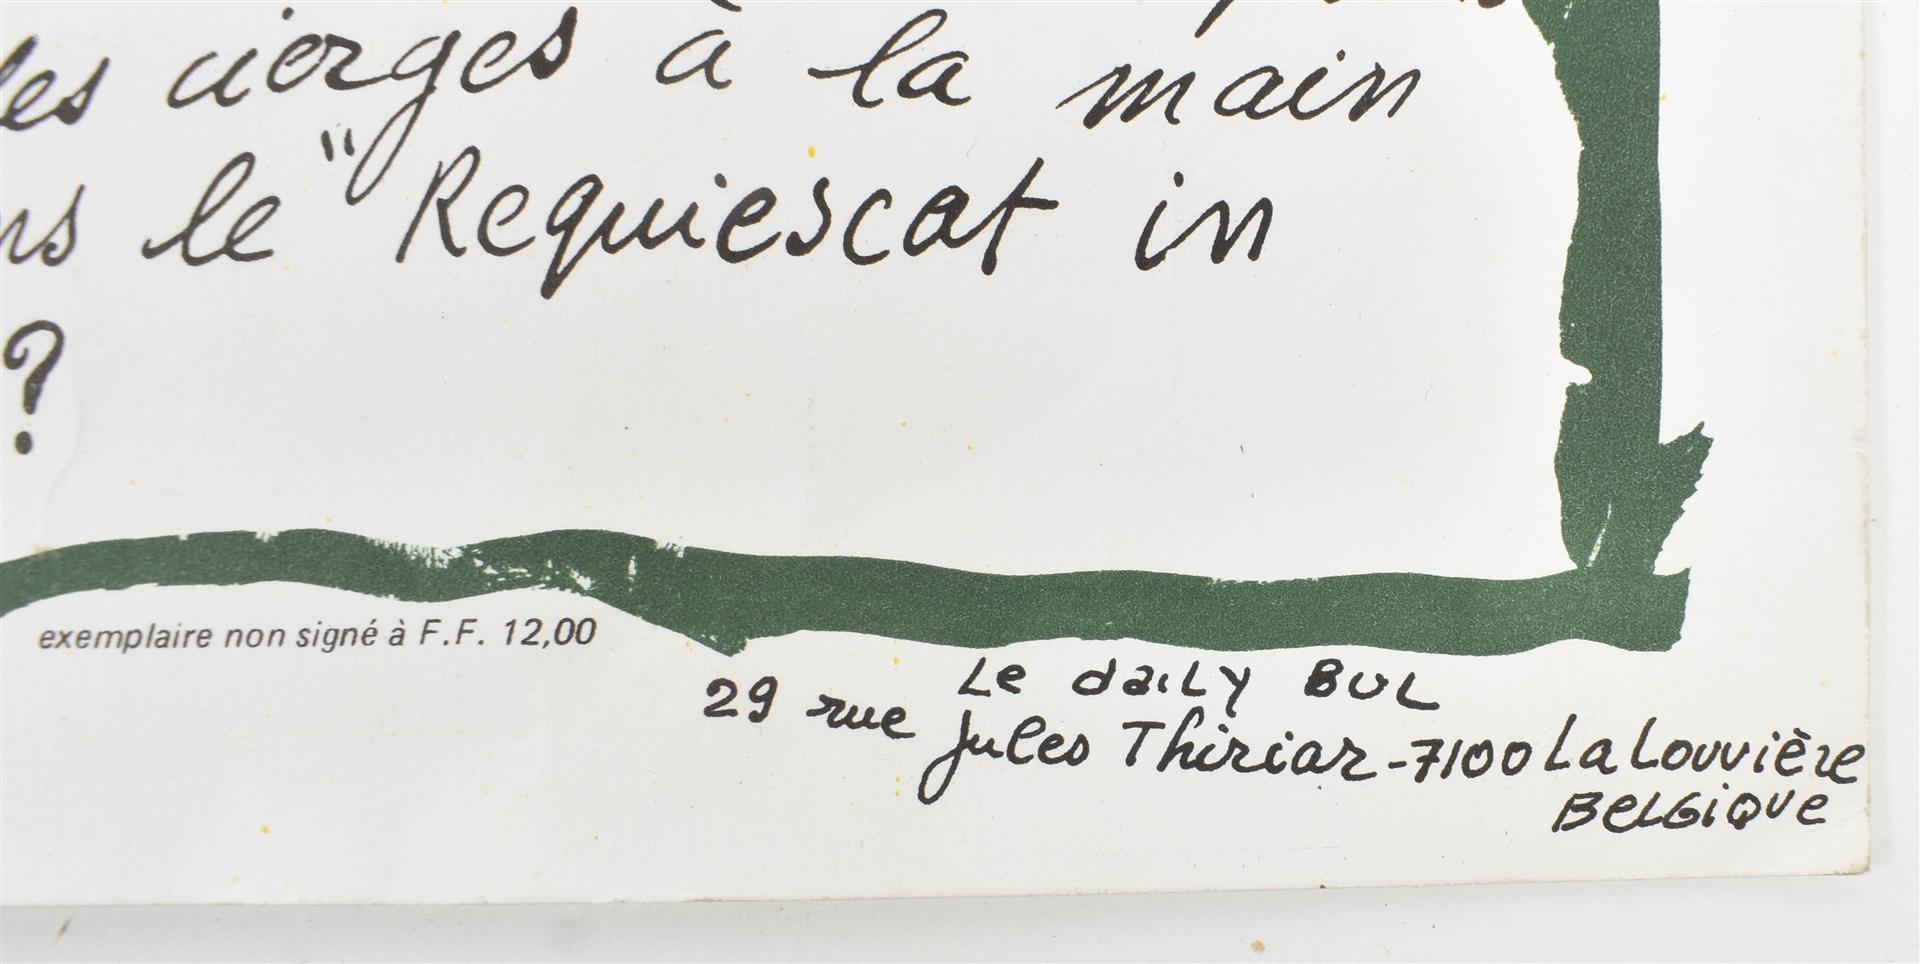 les cierges à la main
le "Requiescat in
?
exemplaire non signé à F.F. 12,00
Le daiLy BUL
29 rue Jules Thiriar - 7100 La Louvière
BeLGiQUe